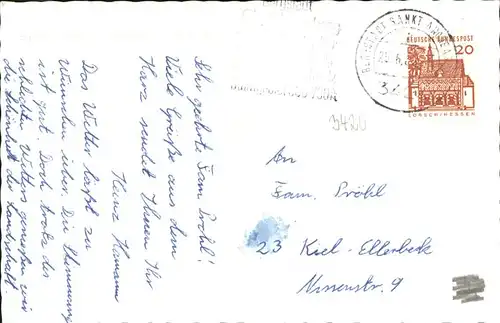 Sehr geehrte Fam. Pröhl!
Viele Grüße aus dem
Harz sendet Ihnen Ihr
Heinz Hamann
Das Wetter läßt zu
Wünschen übrig. Die Stimmung
ist gut. Doch trotz des
schlechten Wetters genießen wir
die Schönheit der Landschaft.
BERGSTADT SANKT ANDREASBERG
DEUTSCHE BUNDESPOST
20
LORSCH/HESSEN
3420
An
Fam. Pröhl
23 Kiel-Ellerbek
Nissenstr. 9